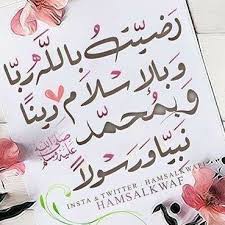 رَضِيتُ بِاللَّهِ رَبًّا
وَبِالإِسْلَامِ دِينًا
وَبِمُحَمَّدٍ
صلى الله عليه وسلم
نَبِيًّا وَرَسُولًا
INSTA & TWITTER HAMSALKWAF
HAMSALKWAF